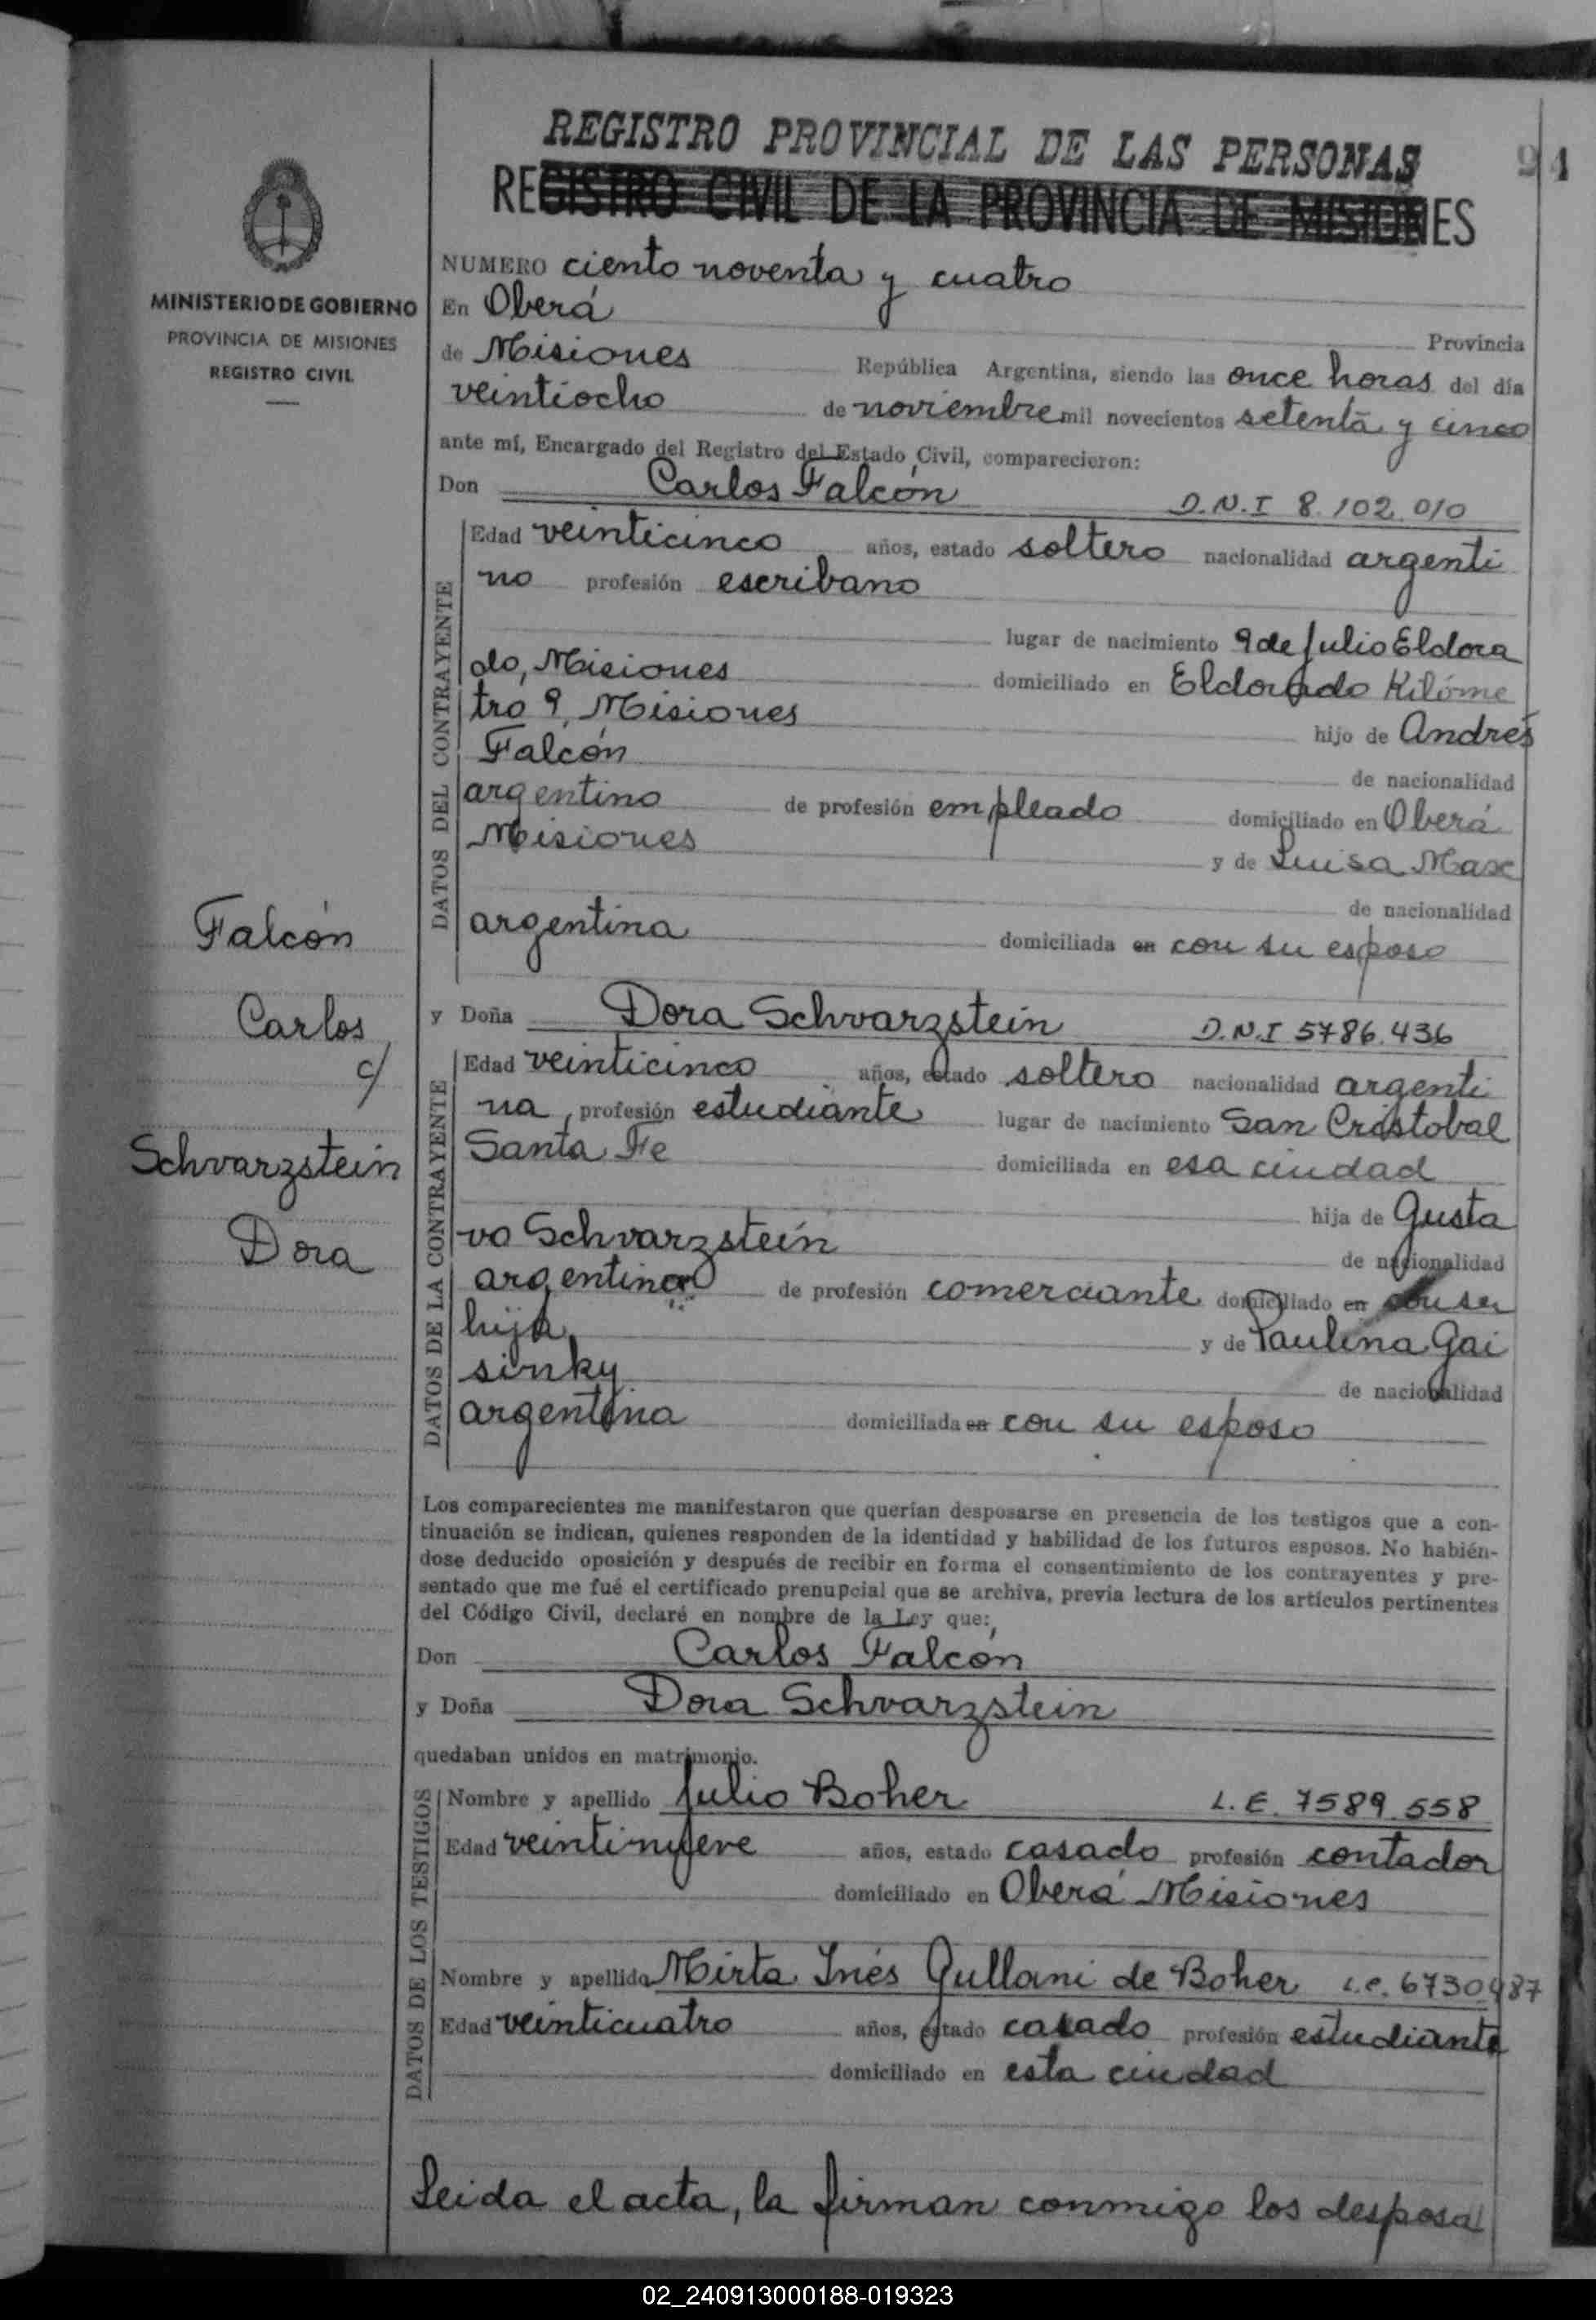 REGISTRO PROVINCIAL DE LAS PERSONAS
94
REGISTRO CIVIL DE LA PROVINCIA DE MISIONES
MINISTERIO DE GOBIERNO
PROVINCIA DE MISIONES
REGISTRO CIVIL
NUMERO ciento noventa y cuatro
En Oberá Provincia
de Misiones República Argentina, siendo las once horas del día
veintiocho de noviembre mil novecientos setenta y cinco
ante mí, Encargado del Registro del Estado Civil, comparecieron:
Don Carlos Falcón D.N.I 8.102.010
DATOS DEL CONTRAYENTE
Edad veinticinco años, estado soltero nacionalidad argenti
no profesión escribano
lugar de nacimiento 9 de Julio Eldora
do, Misiones domiciliado en Eldorado Kilóme
tro 9, Misiones hijo de Andrés
Falcón de nacionalidad
argentino de profesión empleado domiciliado en Oberá
Misiones y de Luisa Max
de nacionalidad
argentina domiciliada en con su esposo
Falcón
Carlos
c/
Schvarzstein
Dora
y Doña Dora Schvarzstein D.N.I 5786.436
DATOS DE LA CONTRAYENTE
Edad veinticinco años, estado soltero nacionalidad argenti
na, profesión estudiante lugar de nacimiento San Cristobal
Santa Fe domiciliada en esa ciudad
hija de Gusta
vo Schvarzstein de nacionalidad
argentino de profesión comerciante domiciliado en con su
hija, y de Paulina Gai
sinky de nacionalidad
argentina domiciliada en con su esposo
Los comparecientes me manifestaron que querían desposarse en presencia de los testigos que a con-
tinuación se indican, quienes responden de la identidad y habilidad de los futuros esposos. No habién-
dose deducido oposición y después de recibir en forma el consentimiento de los contrayentes y pre-
sentado que me fué el certificado prenupcial que se archiva, previa lectura de los artículos pertinentes
del Código Civil, declaré en nombre de la Ley que:
Don Carlos Falcón
y Doña Dora Schvarzstein
quedaban unidos en matrimonio.
DATOS DE LOS TESTIGOS
Nombre y apellido Julio Boher L.E. 7589.558
Edad veintinueve años, estado casado profesión contador
domiciliado en Oberá Misiones
Nombre y apellido Mirta Inés Gullani de Boher L.C. 6730.487
Edad veinticuatro años, estado casado profesión estudiante
domiciliado en esta ciudad
Leida el acta, la firman conmigo los desposa
02_240913000188-019323